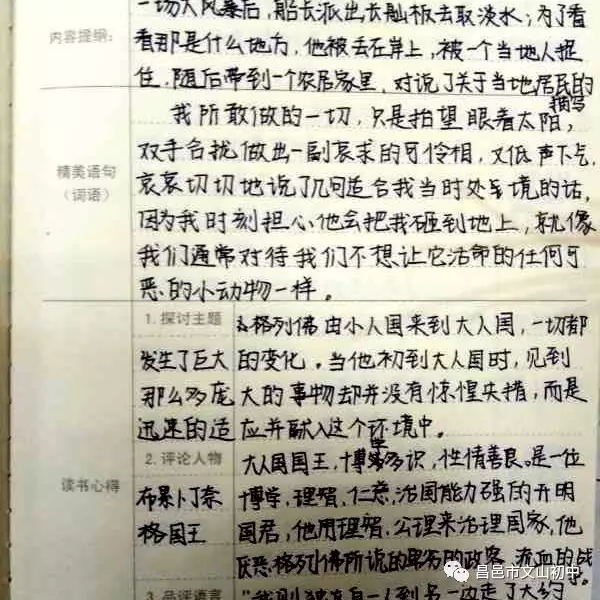 一场大风暴后，船长派出长舢板去取淡水；为了看
内容提纲： 看那是什么地方，他被丢在岸上，被一个当地人捉
住，随后带到一个农居家里，对说了关于当地居民的
描写
我所敢做的一切，只是抬望眼看太阳，
精美语句 双手合拢做出一副哀求的可怜相，又低声下气，
（词语） 哀哀切切地说了几句适合我当时处境的话，
因为我时刻担心他会把我砸到地上，就像
我们通常对待我们不想让它活命的任何可
恶的小动物一样。
1. 探讨主题 格列佛由小人国来到大人国，一切都
发生了巨大的变化。当他初到大人国时，见到
那么多庞大的事物却并没有惊惶失措，而是
迅速的适应并融入这个环境中。
2. 评论人物 大人国国王，博学多识，性情善良。是一位
读书心得 布罗卜丁奈 博学，理智，仁慈，治国能力强的开明
格国王 国君，他用理智，公理来治理国家，他
厌恶格列佛所说的 的政客，流血的战
3. 品评语言
昌邑市文山初中